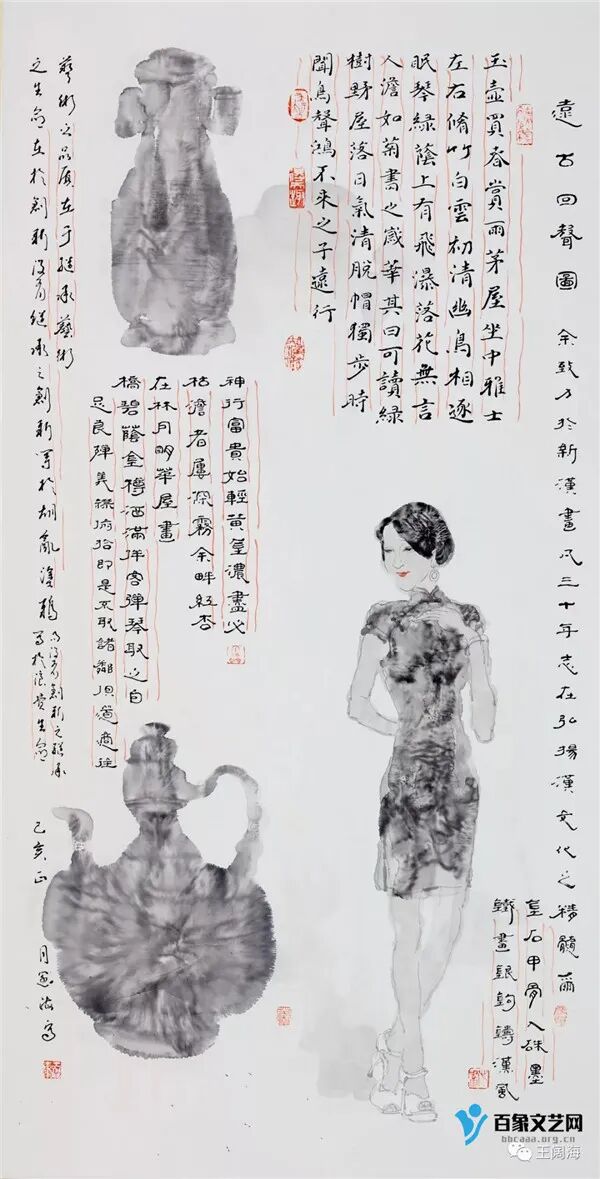 遠古回聲圖 余致力於新漢畫凡三十年志在弘揚漢文化之精髓爾
玉壺買春賞雨茅屋坐中雅士
左右脩竹白雲初清幽鳥相逐
眠琴綠蔭上有飛瀑落花無言
人澹如菊書之歲華其曰可讀綠
樹野屋落日氣清脫帽獨步時
聞鳥聲鴻不來之子遠行
神行富貴始輕黃金濃盡必
枯澹者屢深霧余畔紅杏
在林月明華屋畫
橋碧蔭金樽酒滿伴客彈琴取之自
足良殫美襟俯拾即是不取諸鄰俱道適往
藝術之品質在于繼承藝術
之生命在於創新沒有繼承之創新等於胡亂塗鴉
而沒有創新之繼承
等於浪費生命
己亥正月 海寫
金石甲骨入硃墨
鐵畫銀鉤鑄漢風
百象文艺网
bbcaaa.org.cn
王阔海